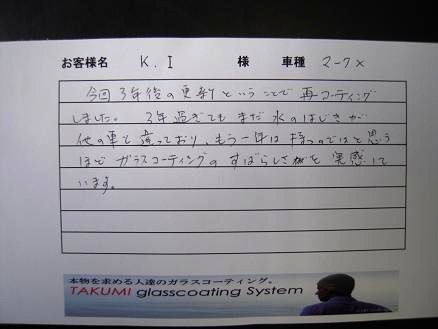 お客様名 K.I 様 車種 マークX
今回3年後の更新ということで再コーティング
しました。3年過ぎてもまだ水のはじきが
他の車と違っており、もう一年は持つのではと思う
ほどガラスコーティングのすばらしさを実感して
います。
本物を求める人達のガラスコーティング。
TAKUMI glasscoating System